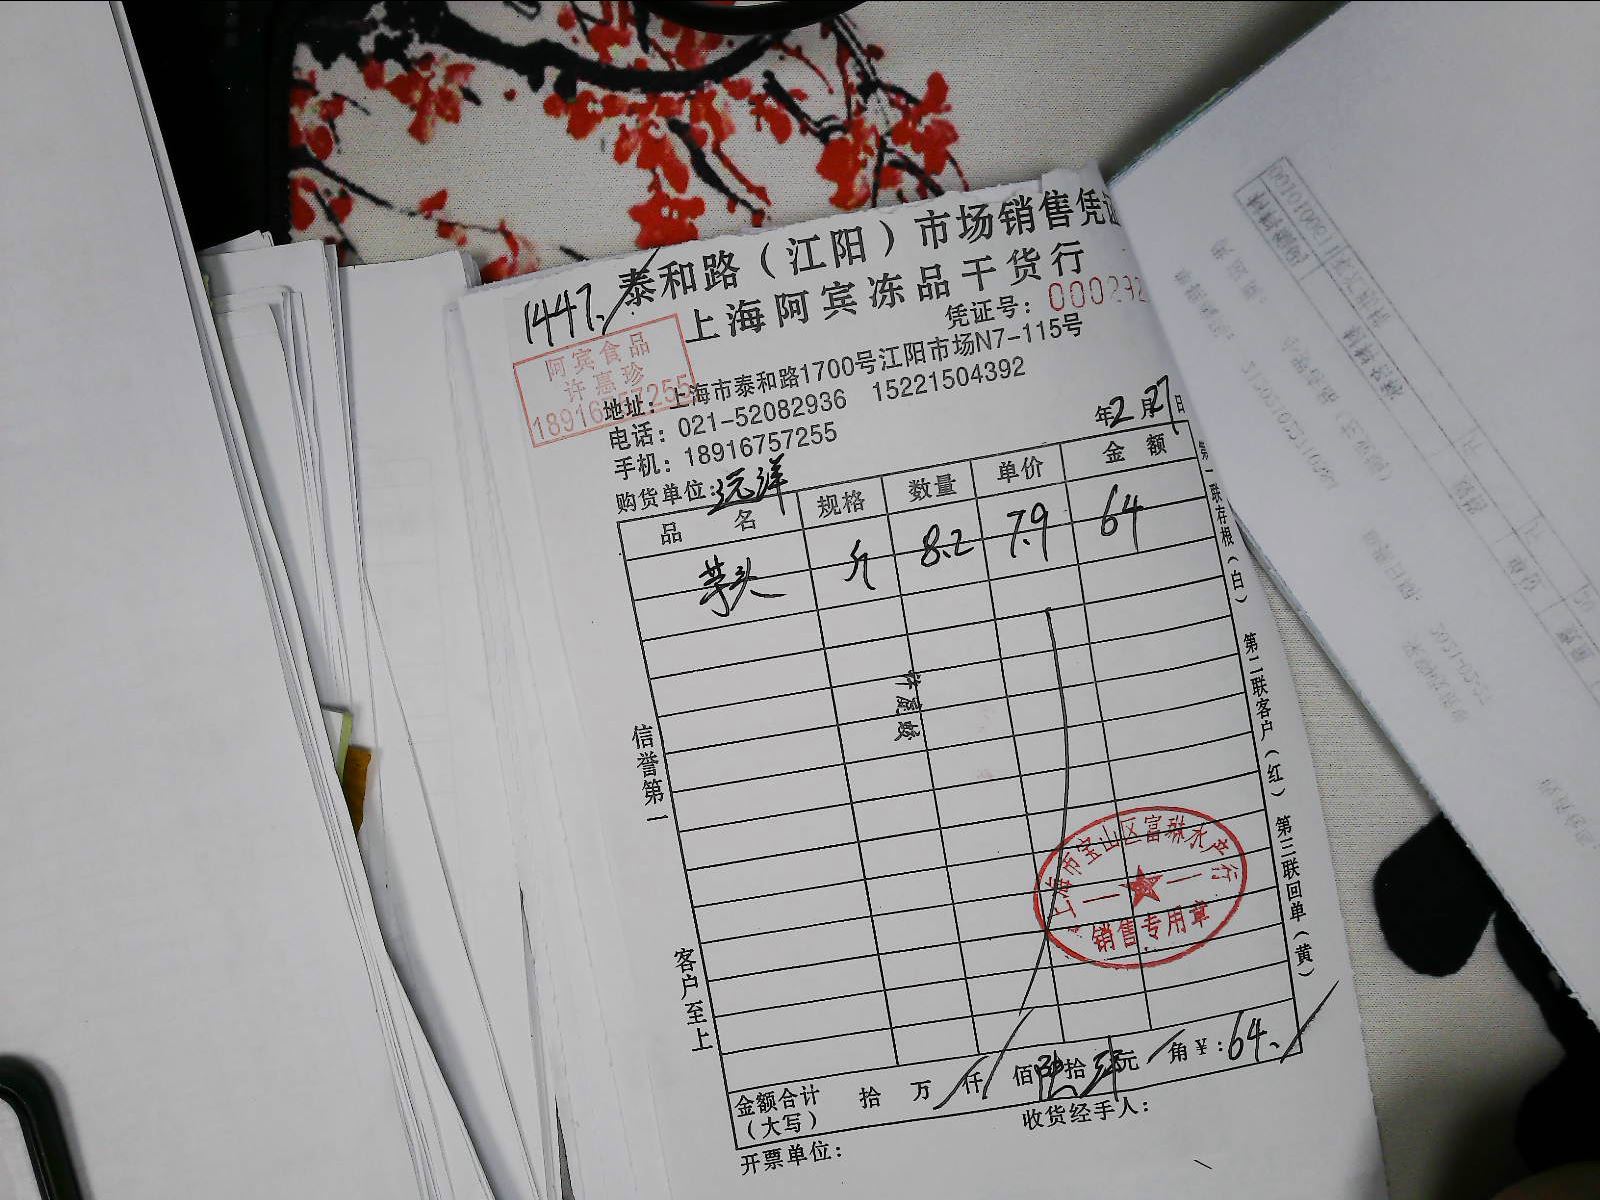 泰和路（江阳）市场销售凭证
1447.
上海阿宾冻品干货行
凭证号：000292
阿宾食品
许惠珍
18916757255
地址：上海市泰和路1700号江阳市场N7-115号
电话：021-52082936 15221504392
手机：18916757255
年2月27日
购货单位：远洋
品名 规格 数量 单价 金额
芋头 斤 8.2 7.9 64
信誉第一
客户至上
第一联存根（白） 第二联客户（红） 第三联回单（黄）
上海市宝山区富琳水产行
销售专用章
金额合计（大写） 拾 万 仟 佰 陆拾 肆元 角 ￥：64.
收货经手人：
开票单位：